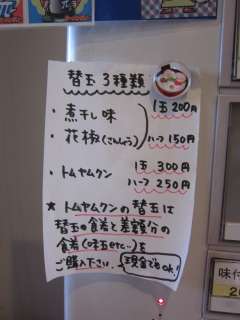 替玉 3種類
・煮干し味 1玉 200円
・花椒(さんしょう) ハーフ 150円
・トムヤムクン 1玉 300円
ハーフ 250円
★トムヤムクンの替玉は
替玉の食券と差額分の
食券(味玉etc…)を
ご購入下さい。 現金でもOK!
味付